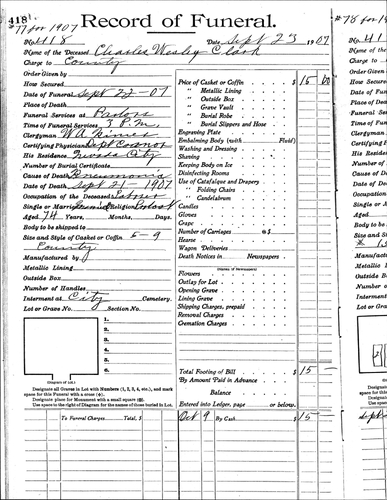 418
#77 for 1907
Record of Funeral.
No. 418 Date Sept 23 1907
Name of the Deceased Charles Wesley Clark
Charge to County
Order Given by
How Secured
Date of Funeral Sept 22 - 07
Place of Death
Funeral Services at Parlors
Time of Funeral Services 2 P.M.
Clergyman W. A.
Certifying Physician Dept Coroner
His Residence Nevada City
Number of Burial Certificate
Cause of Death Pneumonia
Date of Death Sept 21 - 1907
Occupation of the Deceased Laborer
Single or Married Religion
Aged 74 Years, Months, Days.
Body to be shipped to
Size and Style of Casket or Coffin 5-9
County
Manufactured by
Metallic Lining
Outside Box
Number of Handles
Interment at City Cemetery.
Lot or Grave No. Section No.
1.
2.
3.
4.
5.
6.
(Diagram of Lot.)
Designate all Graves in Lot with Numbers (1, 2, 3, 4, etc.), and mark space for this Funeral with a cross
Designate place for Monument with a small square
Use space to right of Diagram for the names of those buried in Lot.
To Funeral Charges Total, $
Price of Casket or Coffin $ 15 00
" Metallic Lining
" Outside Box
" Grave Vault
" Burial Robe
" Burial Slippers and Hose
Engraving Plate
Embalming Body (with Fluid)
Washing and Dressing
Shaving
Keeping Body on Ice
Disinfecting Rooms
Use of Catafalque and Drapery
" Folding Chairs
" Candelabrum
Candles
Gloves
Crape
Number of Carriages @ $
Hearse
Wagon Deliveries
Death Notices in Newspapers
(Names of Newspapers)
Flowers
Outlay for Lot
Opening Grave
Lining Grave
Shipping Charges, prepaid
Removal Charges
Cremation Charges
Total Footing of Bill $ 15 -
By Amount Paid in Advance
Balance
Entered into Ledger, page or below.
Oct 9 By Cash $ 15
#78 for 19
No. 41
Name of the
Charge to
Order Given
How Secured
Date of Funeral
Place of Death
Funeral Services
Time of Funeral
Clergyman
Certifying
His Residence
Number of
Cause of Death
Date of Death
Occupation
Single or Married
Aged
Body to be
Size and St
Manufactured
Metallic Lining
Outside Box
Number of
Interment at
Lot or Grave
Sept